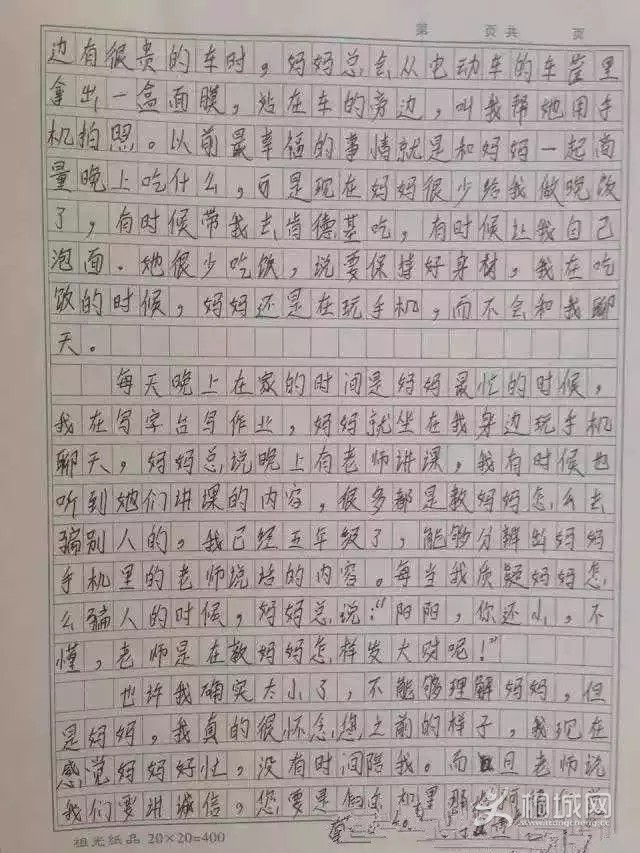 第 页共 页
边有很贵的车时，妈妈总会从电动车的车筐里
拿出一盒面膜，站在车的旁边，叫我帮她用手
机拍照。以前最幸福的事情就是和妈妈一起商
量晚上吃什么，可是现在妈妈很少给我做晚饭
了，有时候带我去肯德基吃，有时候让我自己
泡面。她很少吃饭，说要保持好身材，我在吃
饭的时候，妈妈还是在玩手机，而不会和我聊
天。
每天晚上在家的时间是妈妈最忙的时候，
我在写字台写作业，妈妈就坐在我身边玩手机
聊天，妈妈总说晚上有老师讲课，我有时候也
听到她们讲课的内容，很多都是教妈妈怎么去
骗别人的。我已经五年级了，能够分辨出妈妈
手机里的老师说话的内容。每当我质疑妈妈怎
么骗人的时候，妈妈总说：“阳阳，你还小，不
懂，老师是在教妈妈怎样发大财呢！”
也许我确实太小了，不能够理解妈妈，但
是妈妈，我真的很怀念您之前的样子，我现在
感觉妈妈好忙，没有时间陪我。而且老师说
我们要讲诚信，您要是
祖光纸品 20×20=400
桐城网
www.itongcheng.cc